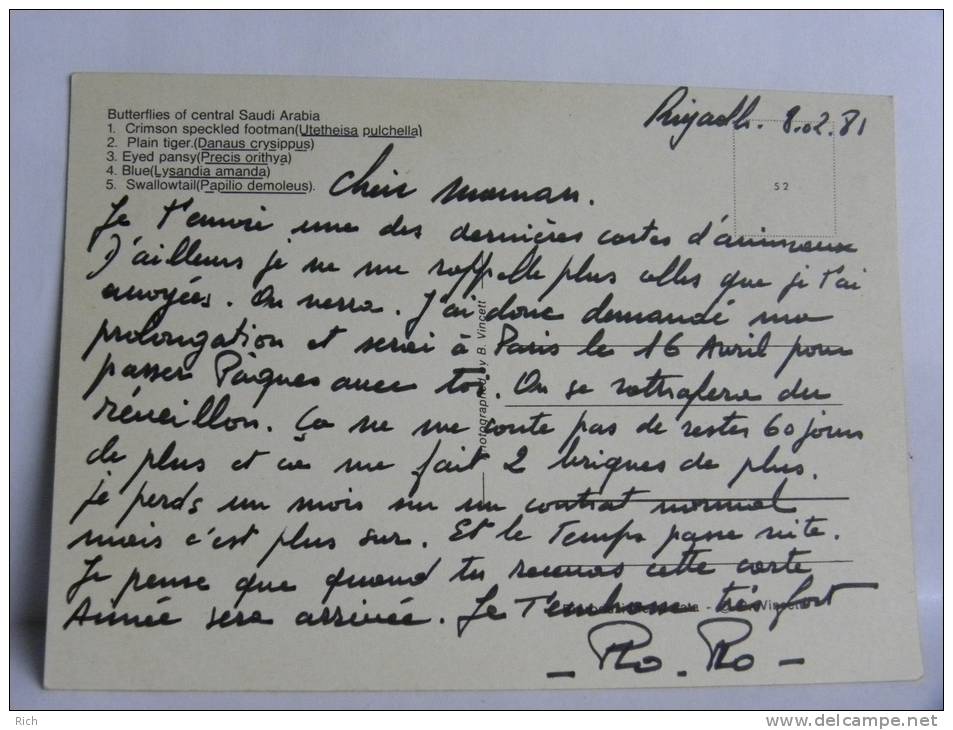 Butterflies of central Saudi Arabia
1. Crimson speckled footman(Utetheisa pulchella)
2. Plain tiger.(Danaus crysippus)
3. Eyed pansy(Precis orithya)
4. Blue(Lysandia amanda)
5. Swallowtail(Papilio demoleus).
Riyadh. 8.02.81
S 2
Chère maman.
Je t'envoie une des dernières cartes d'animaux
D'ailleurs je ne me rappelle plus celles que je t'ai
envoyées. On verra. J'ai donc demandé ma
prolongation et serai à Paris le 16 Avril pour
passer Pâques avec toi. On se rattrapera du
réveillon. Ça ne me coute pas de rester 60 jours
de plus et ça me fait 2 briques de plus.
je perds un mois sur un contrat normal
mais c'est plus sur. Et le temps passe vite.
Je pense que quand tu recevras cette carte
Année sera arrivée. Je t'embrasse très fort
Photographed by B. Vincett
- Vincett
- Ro. Ro -
Rich
www.delcampe.net